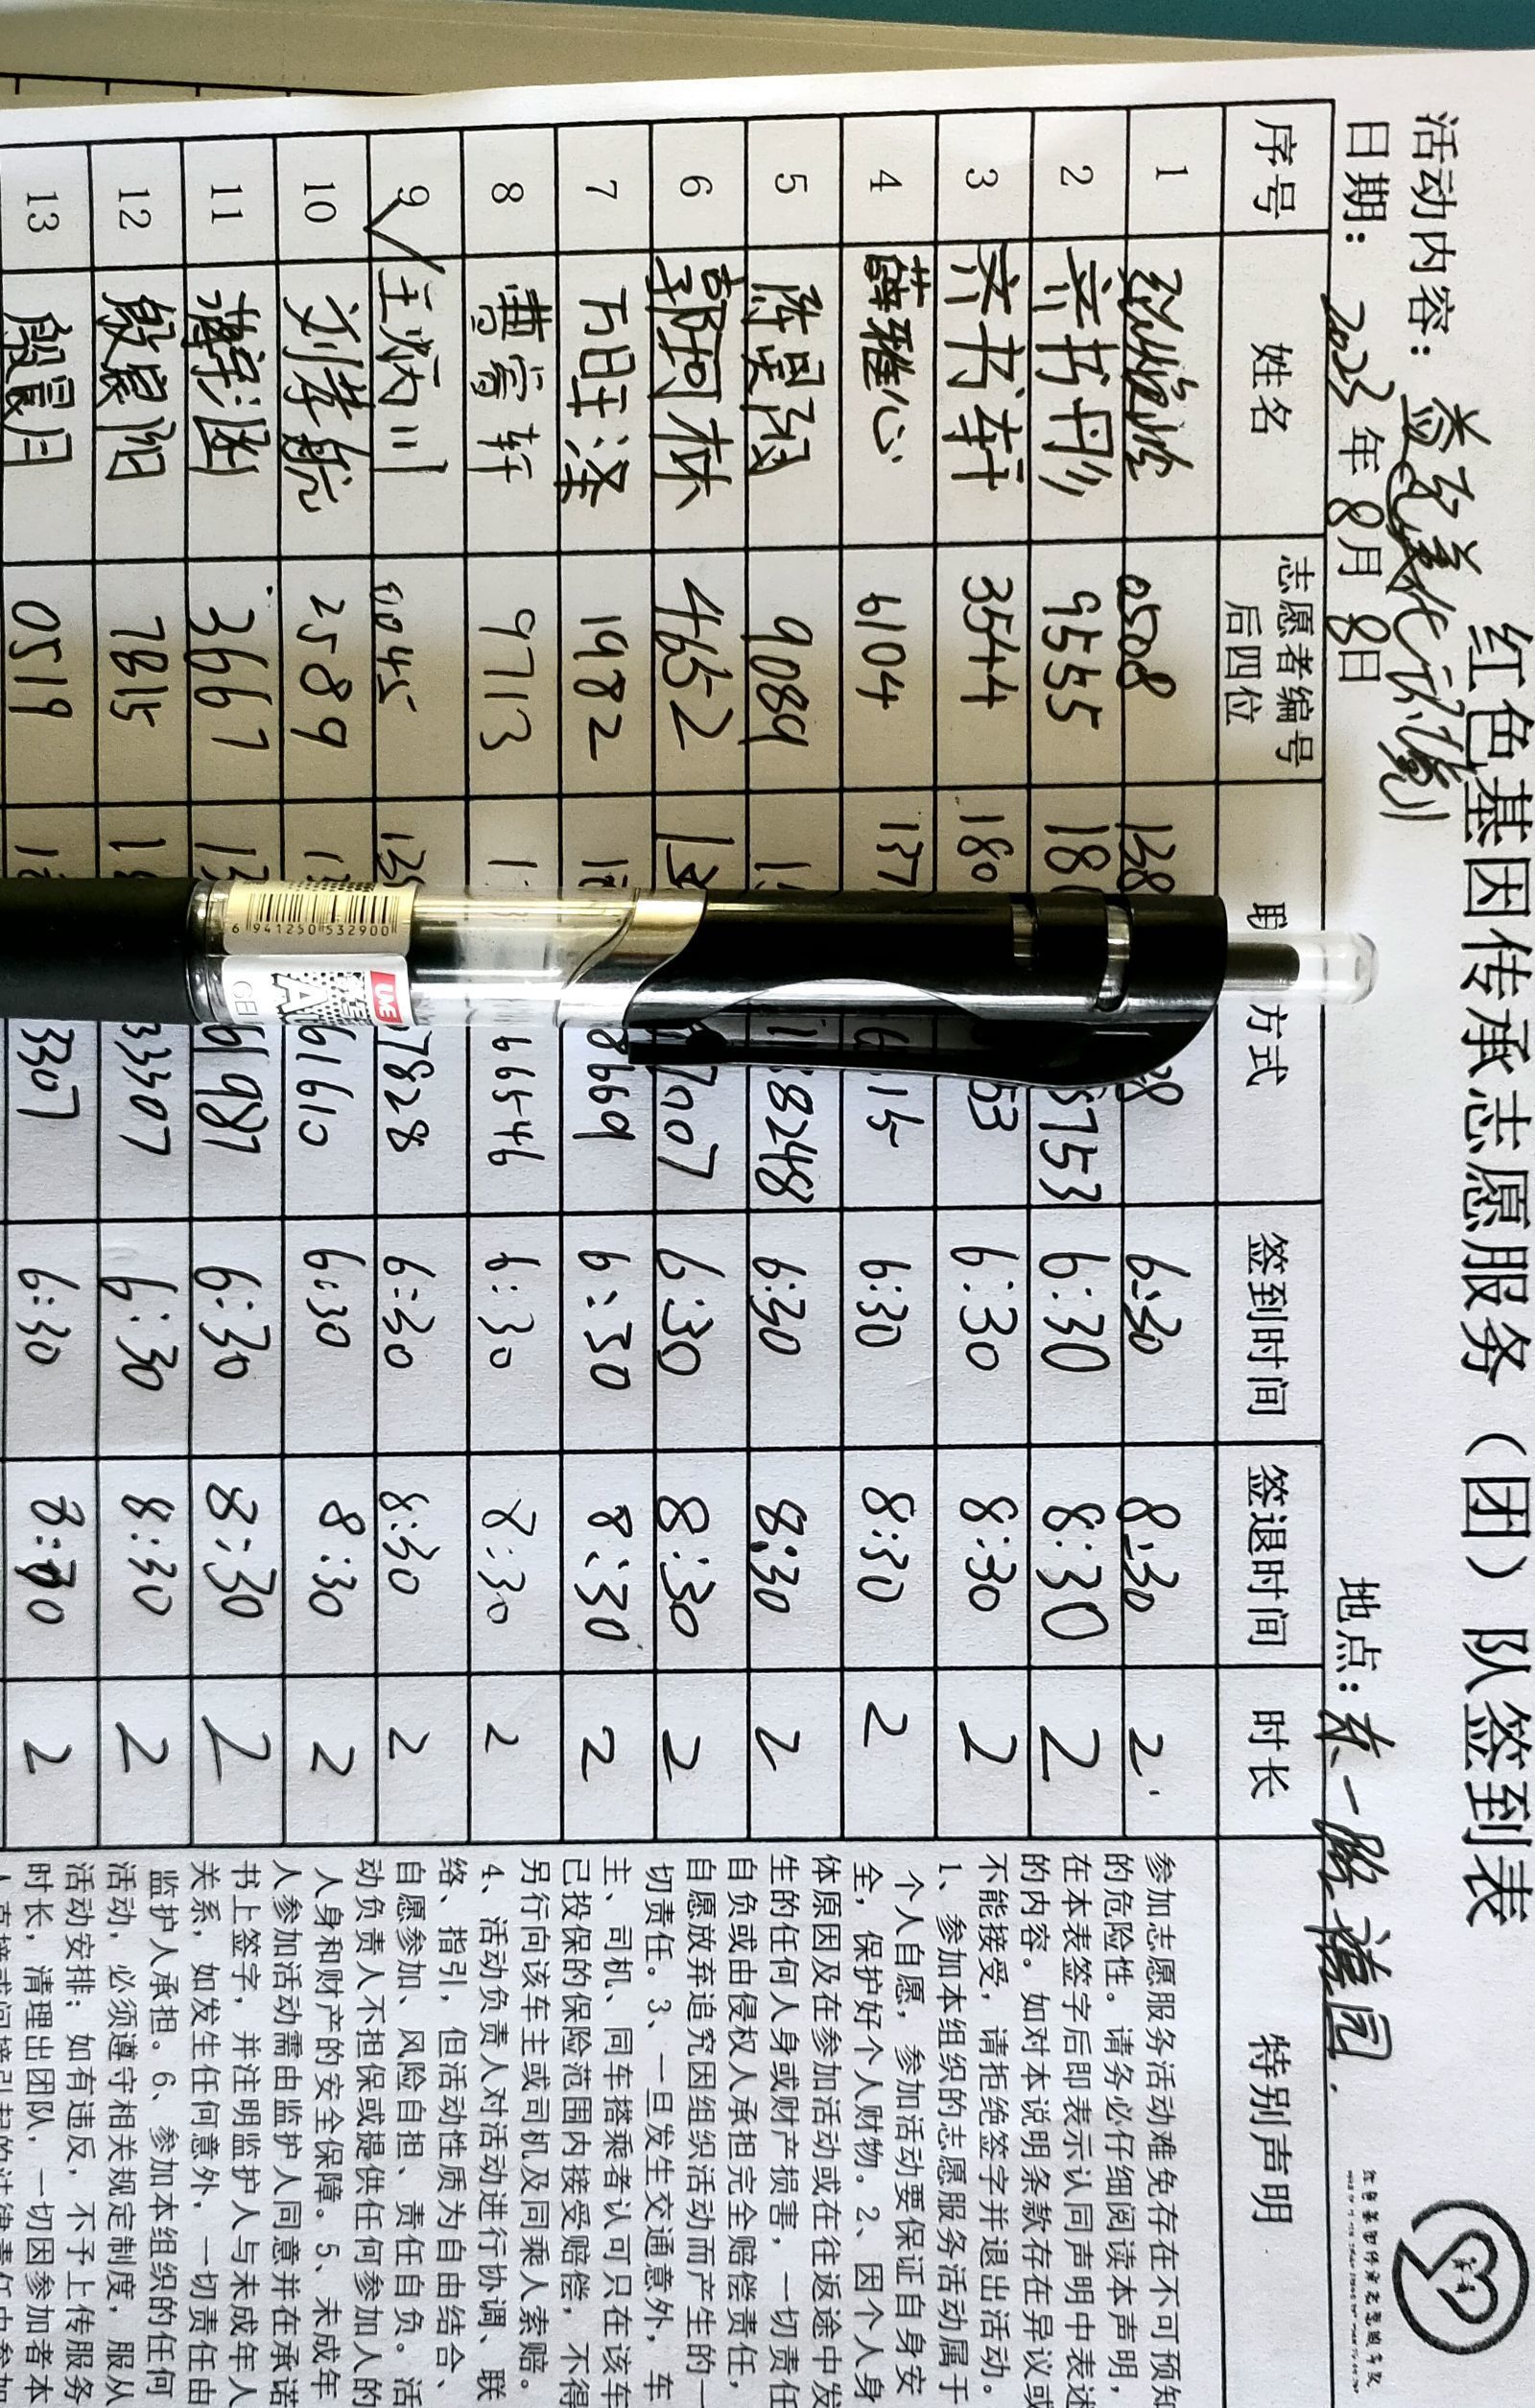 红色基因传承志愿服务（团）队签到表
活动内容：
日期：2023年8月8日 地点：东一路
序号 姓名 志愿者编号后四位 方式 签到时间 签退时间 时长 特别声明
1 0508 138 6:30 8:30 2
2 齐书彤 9555 180 5753 6:30 8:30 2
3 齐书轩 3544 180 53 6:30 8:30 2
4 薛雅心 6104 137 15 6:30 8:30 2
5 陈昊阅 9089 8248 6:30 8:30 2
6 郭珂林 4652 7707 6:30 8:30 2
7 万旺泽 1982 8669 6:30 8:30 2
8 曹富轩 9713 66546 6:30 8:30 2
9 王炳川 0045 135 7828 6:30 8:30 2
10 刘峰航 2589 61610 6:30 8:30 2
11 3667 13 61987 6:30 8:30 2
12 殷晨阳 7815 33307 6:30 8:30 2
13 殷晨月 0519 3307 6:30 8:30 2
参加志愿服务活动难免存在不可预知
的危险性。请务必仔细阅读本声明，
在本表签字后即表示认同声明中表述
的内容。如对本说明条款存在异议或
不能接受，请拒绝签字并退出活动。
1、参加本组织的志愿服务活动属于
个人自愿，参加活动要保证自身安
全，保护好个人财物。2、因个人身
体原因及在参加活动或在往返途中发
生的任何人身或财产损害，一切责任
自负或由侵权人承担完全赔偿责任，
自愿放弃追究因组织活动而产生的一
切责任。3、一旦发生交通意外，车
主、司机、同车搭乘者认可只在该车
已投保的保险范围内接受赔偿，不得
另行向该车主或司机及同乘人索赔。
4、活动负责人对活动进行协调、联
络、指引，但活动性质为自由结合、
自愿参加、风险自担、责任自负。活
动负责人不担保或提供任何参加人的
人身和财产的安全保障。5、未成年
人参加活动需由监护人同意并在承诺
书上签字，并注明监护人与未成年人
关系，如发生任何意外，一切责任由
监护人承担。6、参加本组织的任何
活动，必须遵守相关规定制度，服从
活动安排；如有违反，不予上传服务
时长，清理出团队，一切因参加者本
6 941250 532900
GEL